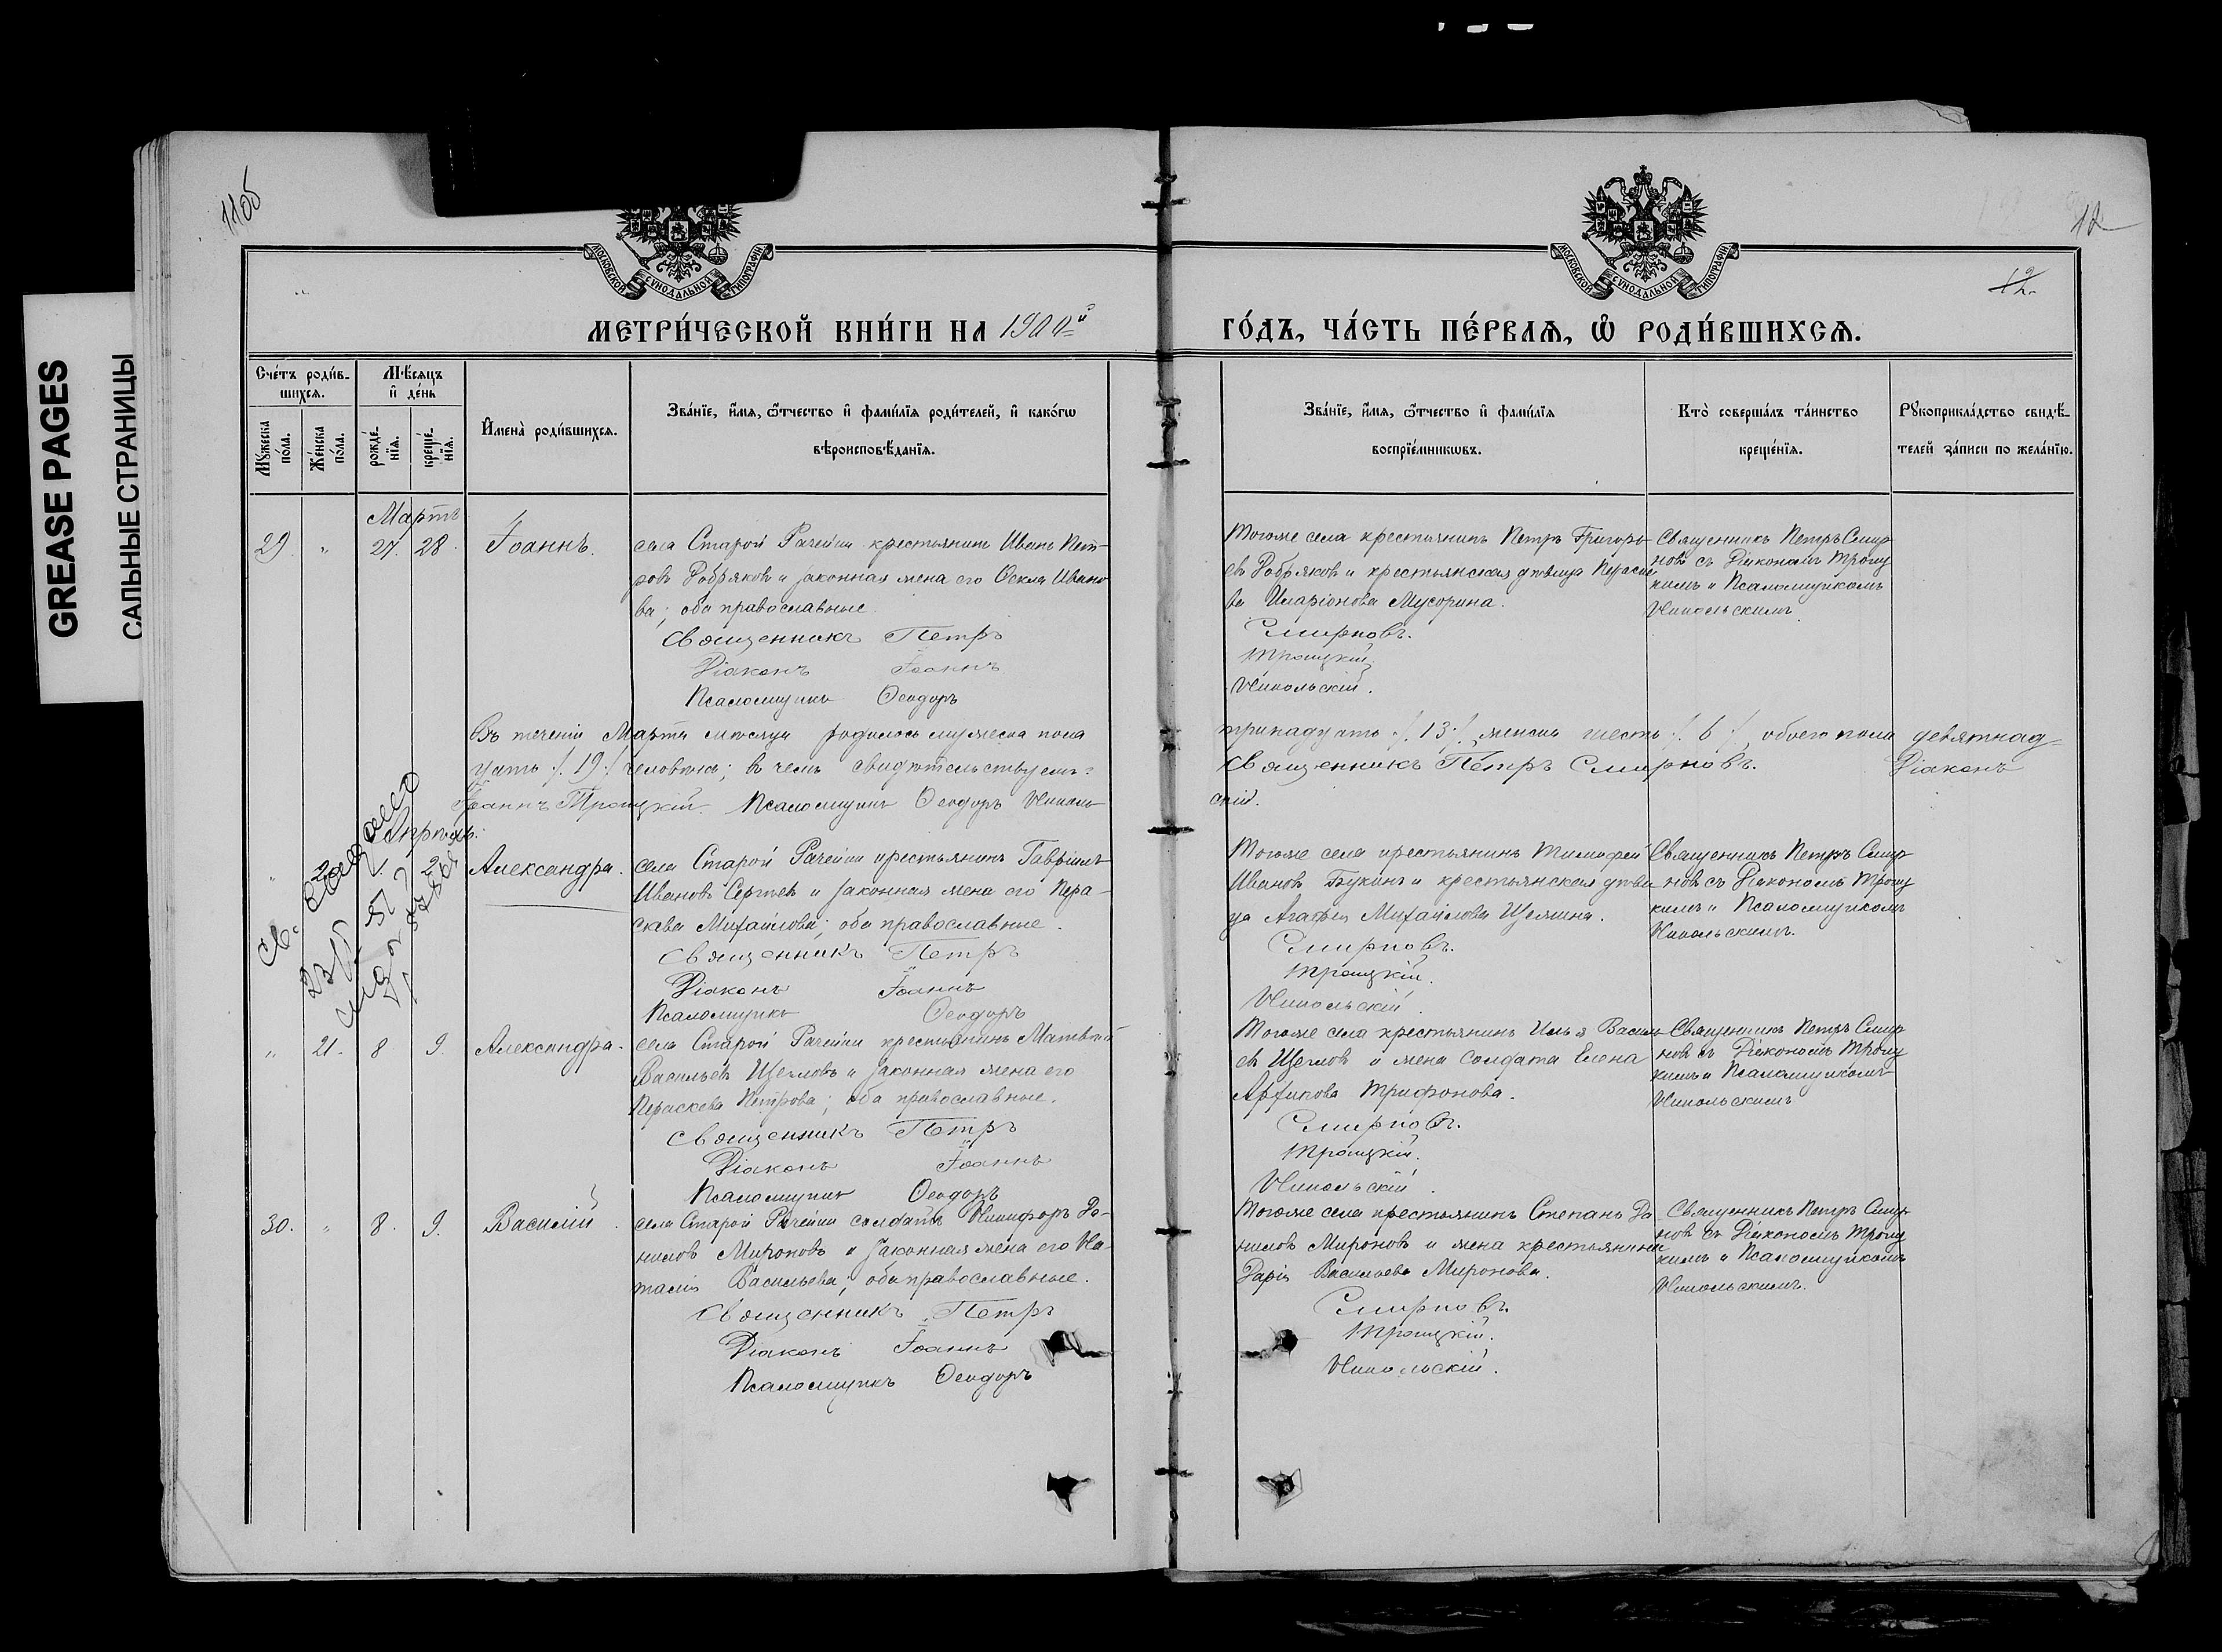 GREASE PAGES
САЛЬНЫЕ СТРАНИЦЫ
11об
12
12
МОСКОВСКОЙ СѴНОДАЛЬНОЙ ТИПОГРАФІИ
МОСКОВСКОЙ СѴНОДАЛЬНОЙ ТИПОГРАФІИ
МЕТРИ́ЧЕСКОЙ КНИ́ГИ НА 1900й
ГО́ДЪ, ЧА́СТЬ ПЕ́РВАѦ, Ѡ҆ РОДИ́ВШИХСѦ.
Сче́тъ роди́в-
шихсѧ.
Мꙋ́жеска по́ла.
Же́нска по́ла.
Мѣ́сѧцъ
и҆ де́нь
рожде́-
нїѧ.
креще́-
нїѧ.
И҆мена̀ роди́вшихсѧ.
Зва́нїе, и҆́мѧ, ѻ҆́тчество и҆ фами́лїѧ роди́телей, и҆ како́гѡ
вѣроисповѣ́данїѧ.
Зва́нїе, и҆́мѧ, ѻ҆́тчество и҆ фами́лїѧ
воспрїе́мникѡвъ.
Кто̀ соверша́лъ та́инство
креще́нїѧ.
Рꙋкоприкла́дство свидѣ́-
телей за́писи по жела́нїю.
Мартъ
29. " 27. 28. Іоаннъ.
села Старой Рачейки крестьянинъ Иванъ Пет-
ровъ Добряковъ и законная жена его Ѳекла Ивано
ва; оба православные.
Священникъ Петръ
Діаконъ Іоаннъ
Псаломщикъ Ѳеодоръ
Тогоже села крестьянинъ Петръ Григорь-
евъ Добряковъ и крестьянская дѣвица Параске
ва Иларіонова Мусорина.
Смирновъ.
Троицкій.
Никольскій.
Священникъ Петръ Смир
новъ съ Діакономъ Троиц
кимъ и Псаломщикомъ
Никольскимъ.
Въ теченіи Марта мѣсяца родилось мужеска пола
тринадцать /. 13 /. женска шесть /. 6 /. обоего пола девятнад-
цать /. 19 /. человѣкъ; въ чемъ свидѣтельствуемъ:
Священникъ Петръ Смирновъ. Діаконъ
Іоаннъ Троицкій. Псаломщикъ Ѳеодоръ Николь
скій.
Апрѣль.
" 20. 1. 2. Александра.
села Старой Рачейки крестьянинъ Гавріилъ
Ивановъ Сергѣевъ и законная жена его Пара-
скева Михайлова; оба православные.
Священникъ Петръ
Діаконъ Іоаннъ
Псаломщикъ Ѳеодоръ
Тогоже села крестьянинъ Тимофей
Ивановъ Букинъ и крестьянская дѣви
ца Агафія Михайлова
Смирновъ.
Троицкій.
Никольскій.
Священникъ Петръ Смир
новъ съ Діакономъ Троиц
кимъ и Псаломщикомъ
Никольскимъ.
" 21. 8 9. Александра.
села Старой Рачейки крестьянинъ Матвѣй
Васильевъ Щегловъ и законная жена его
Параскева Петрова; оба православные.
Священникъ Петръ
Діаконъ Іоаннъ
Псаломщикъ Ѳеодоръ
Тогоже села крестьянинъ Илья Василь
евъ Щегловъ и жена солдата Елена
Трифонова.
Смирновъ.
Троицкій.
Никольскій.
Священникъ Петръ Смир
новъ съ Діакономъ Троиц
кимъ и Псаломщикомъ
Никольскимъ
30. " 8. 9. Василій.
села Старой Рачейки солдатъ Никифоръ Да-
ниловъ Мироновъ и законная жена его На-
талія Васильева; оба православные.
Священникъ Петръ
Діаконъ Іоаннъ
Псаломщикъ Ѳеодоръ
Тогоже села крестьянинъ Степанъ Да
ниловъ Мироновъ и жена крестьянина
Дарія Васильева Миронова.
Смирновъ.
Троицкій.
Никольскій.
Священникъ Петръ Смир
новъ съ Діакономъ Троиц
кимъ и Псаломщикомъ
Никольскимъ.